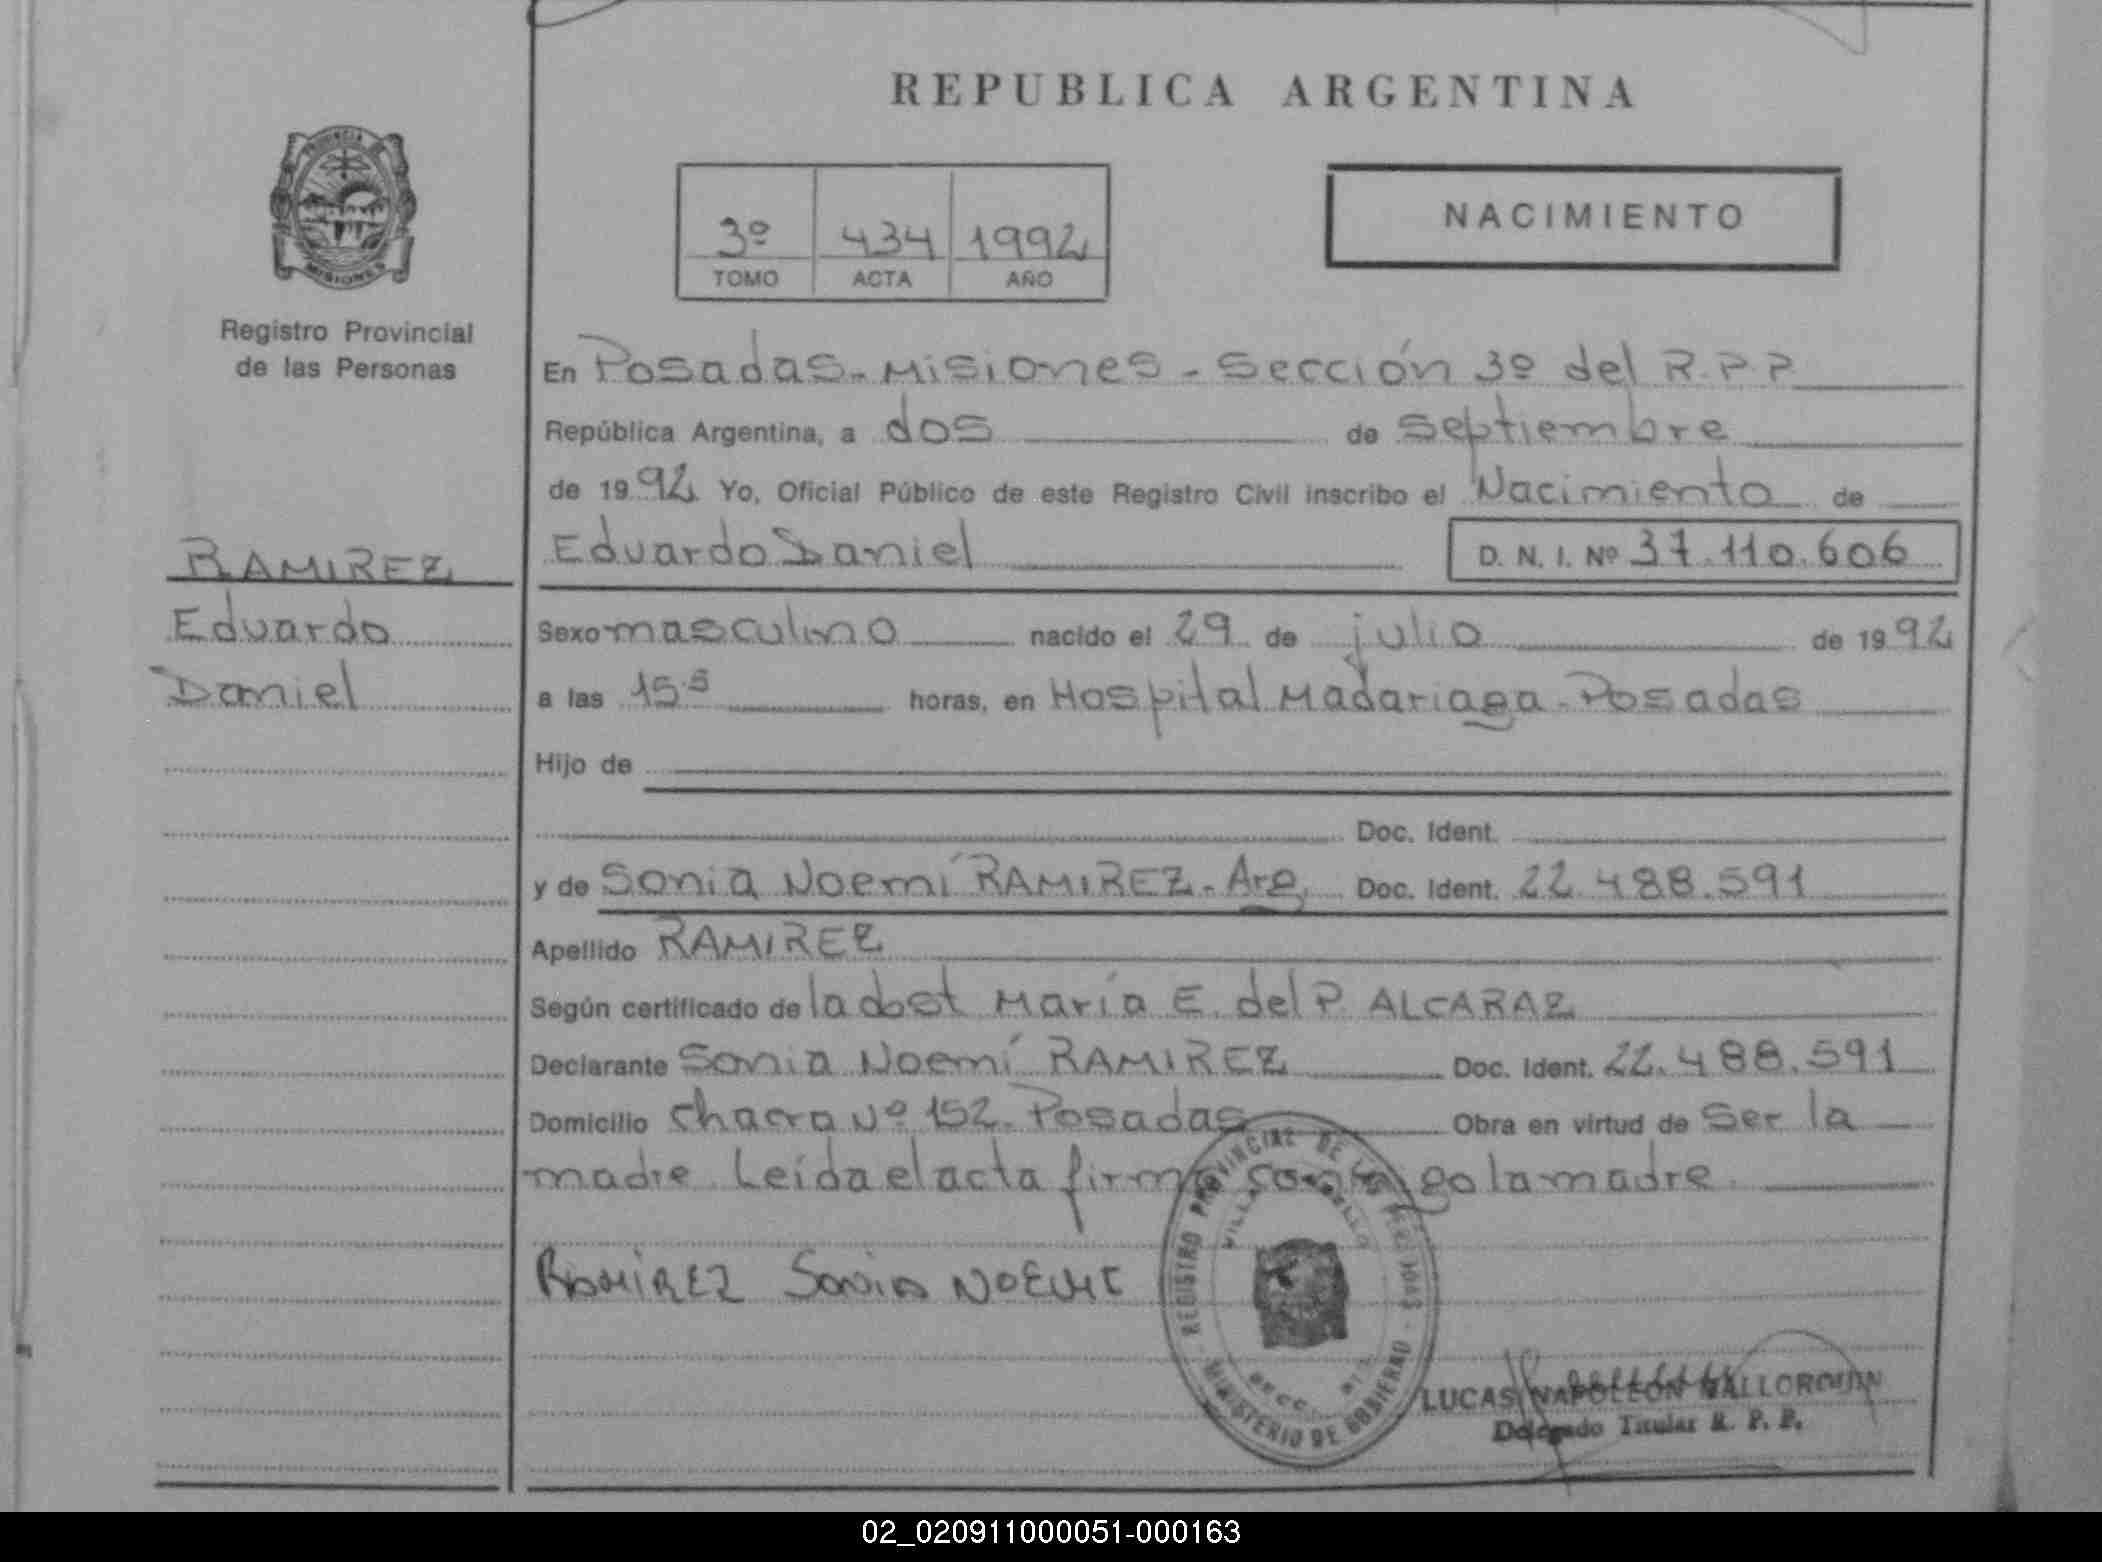 REPUBLICA ARGENTINA
PROVINCIA DE
MISIONES
Registro Provincial
de las Personas
3º 434 1992
TOMO ACTA AÑO
NACIMIENTO
En Posadas-Misiones-Sección 3º del R.P.P.
República Argentina, a dos de Septiembre
de 1992 Yo, Oficial Público de este Registro Civil inscribo el Nacimiento de
Eduardo Daniel D. N. I. Nº 37.110.606
RAMIREZ
Eduardo
Daniel
Sexo masculino nacido el 29 de julio de 1992
a las 15.5 horas, en Hospital Madariaga-Posadas
Hijo de
Doc. Ident.
y de Sonia Noemí RAMIREZ-Arg. Doc. Ident. 22.488.591
Apellido RAMIREZ
Según certificado de la obst María E. del P. ALCARAZ
Declarante Sonia Noemí RAMIREZ Doc. Ident. 22.488.591
Domicilio Chacra Nº 152-Posadas Obra en virtud de Ser la
madre. Leída el acta firma conmigo la madre.
RAMIREZ Sonia NOEMI
REGISTRO PROVINCIAL DE LAS PERSONAS
MINISTERIO DE GOBIERNO
LUCAS NAPOLEON MALLORQUIN
Delegado Titular R. P. P.
02_020911000051-000163